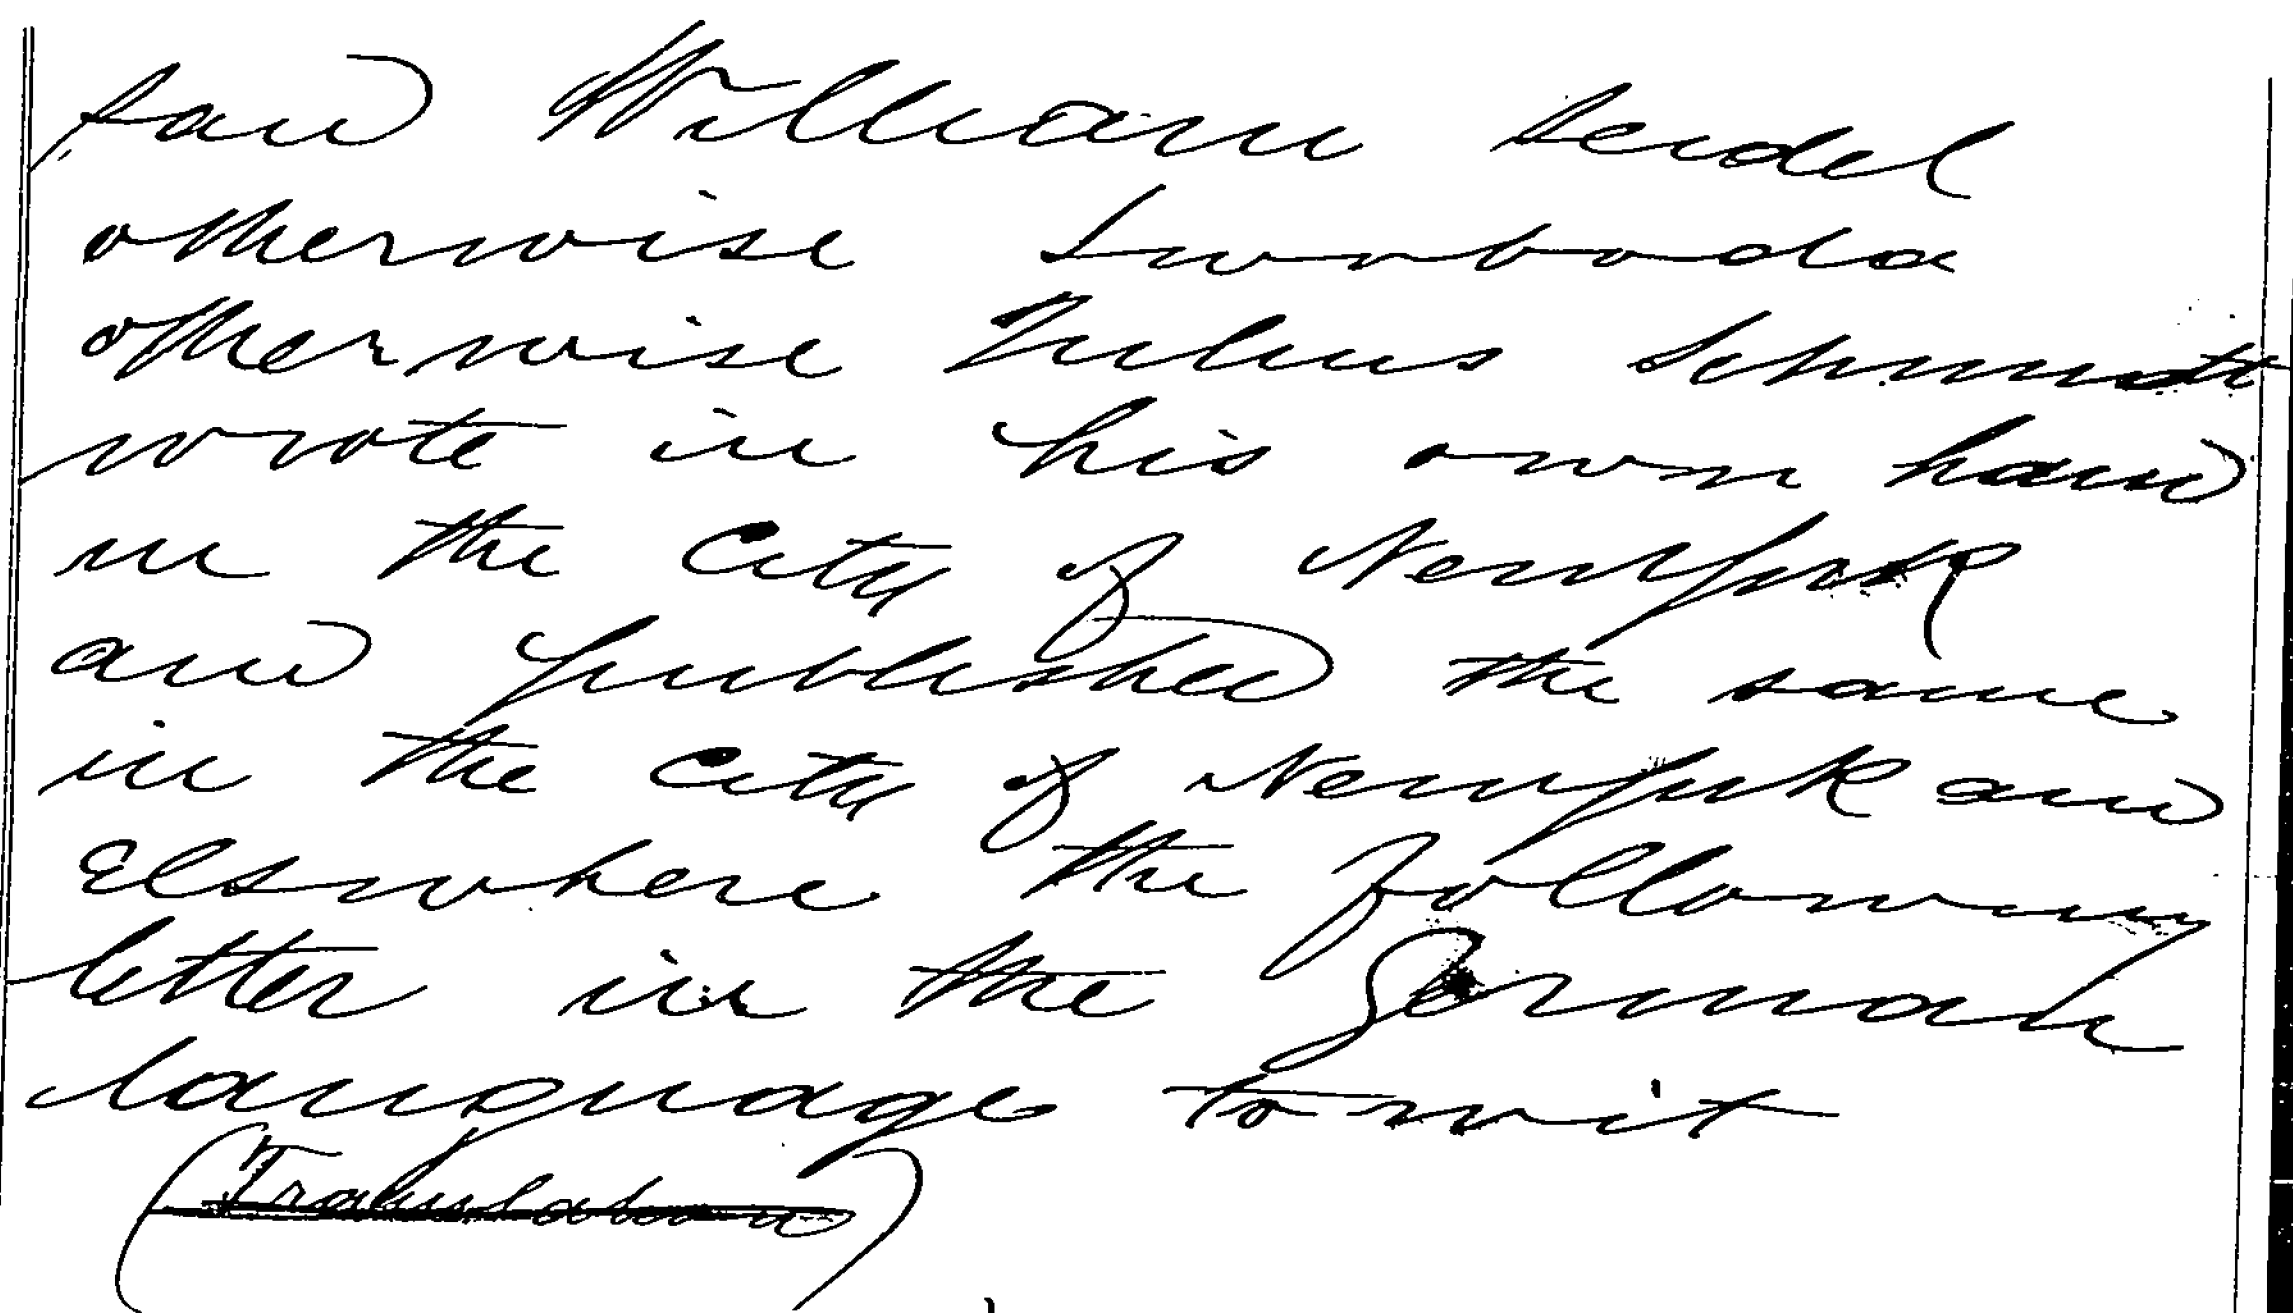 said William Seidel
otherwise Swoboda
otherwise Julius Schmidt
wrote in his own hand
in the City of New York
and published the same
in the City of New York and
Elswhere the following
letter in the German
language to wit
(Translation)